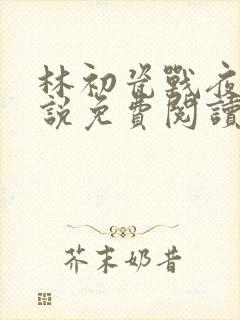 林初瓷戰夜
說免費閱讀
芥末奶昔